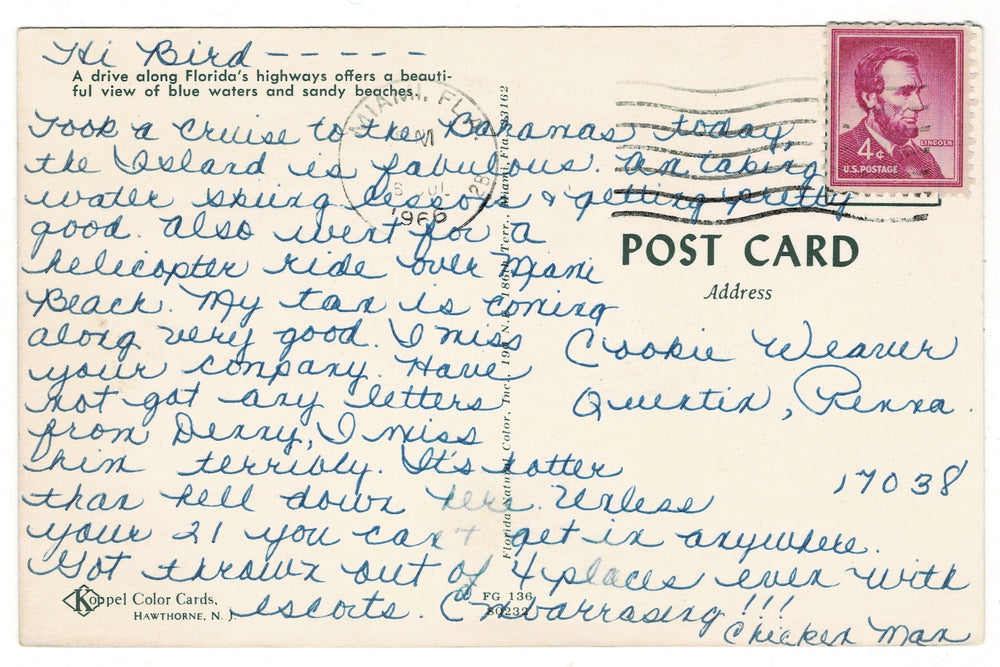 Hi Bird - - - - -
A drive along Florida's highways offers a beauti-
ful view of blue waters and sandy beaches.
Took a cruise to the Bahamas today,
the Island is fabulous. Am taking
water skiing lessons & getting pretty
good. Also went for a
helicopter ride over Miami
Beach. My tan is coming
along very good. I miss
your company. Have
not got any letters
from Denny, I miss
him terribly. It's hotter
than hell down here. Unless
your 21 you can't get in anywhere.
Got thrown out of 4 places even with
escorts. Embarrasing!!!
Chicken Man
Koppel Color Cards,
HAWTHORNE, N. J.
FG 136
S0232
Florida Natural Color, Inc., Terr., Miami, Fla. 33162
MIAMI, FLA.
1966
4¢
U.S. POSTAGE
LINCOLN
POST CARD
Address
Cookie Weaver
Quentin, Penna.
17038